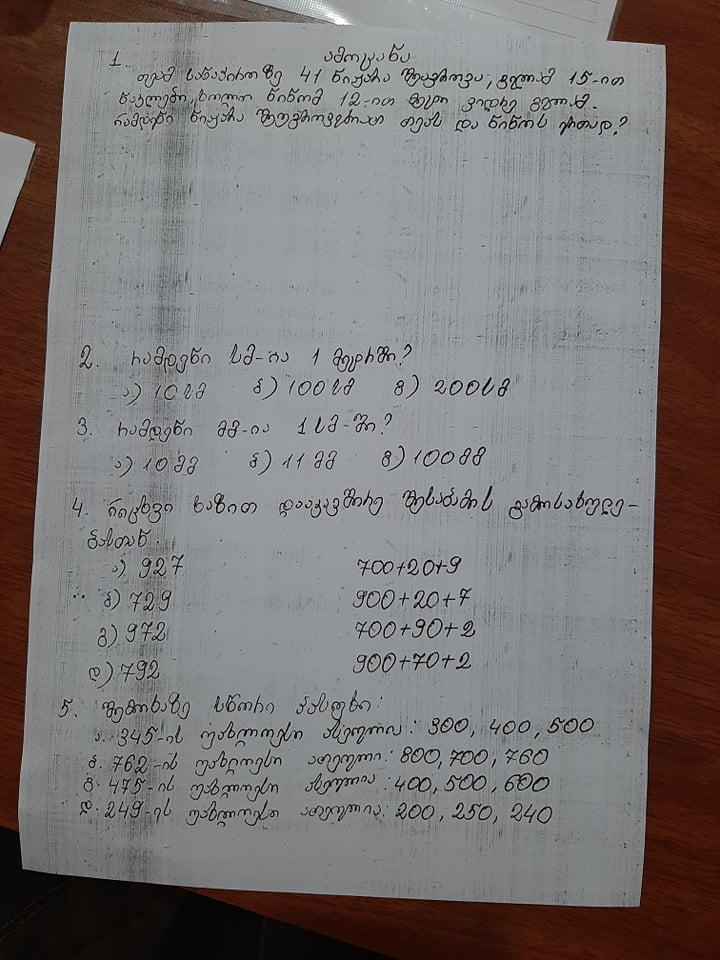 ამოცანა
1. თეამ სანაპიროზე 41 ნიჟარა შეაგროვა, გელამ 15-ით
ნაკლები, ხოლო ნინომ 12-ით მეტი ვიდრე გელამ.
რამდენი ნიჟარა შეუგროვებიათ თეას და ნინოს ერთად?
2. რამდენი სმ-ია 1 მეტრში?
ა) 10სმ ბ) 100სმ გ) 200სმ
3. რამდენი მმ-ია 1სმ-ში?
ა) 10მმ ბ) 11მმ გ) 100მმ
4. რიცხვი ხაზით დააკავშირე შესაბამის გამოსახულე-
ბასთან.
ა) 927 700+20+9
ბ) 729 900+20+7
გ) 972 700+90+2
დ) 792 900+70+2
5. შემოხაზე სწორი პასუხი:
ა. 345-ის უახლოესი ასეულია: 300, 400, 500
ბ. 762-ის უახლოესი ათეული: 800, 700, 760
გ. 475-ის უახლოესი ასეულია: 400, 500, 600
დ. 249-ის უახლოესი ათეულია: 200, 250, 240